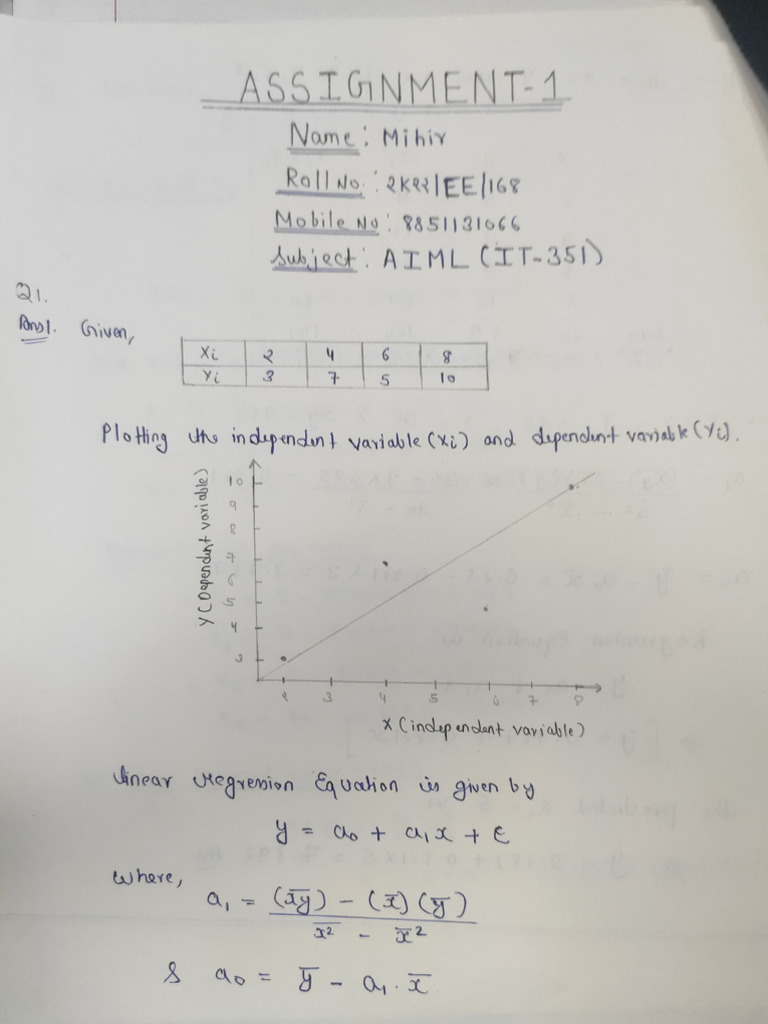 ASSIGNMENT-1
Name: Mihir
Roll No: 2K22/EE/168
Mobile No: 8851131066
Subject: AIML (IT-351)
Q1.
Ans1. Given,
Xi 2 4 6 8
Yi 3 7 5 10
Plotting the independent variable (xi) and dependent variable (Yi).
Y (Dependent variable)
10
9
8
7
6
5
4
3
2 3 4 5 6 7 8
X (independent variable)
linear regression Equation is given by
y = a₀ + a₁x + ε
where,
a₁ = (x̅y̅) - (x̅)(y̅)
x̅²̅ - x̅²
& a₀ = y̅ - a₁ . x̅